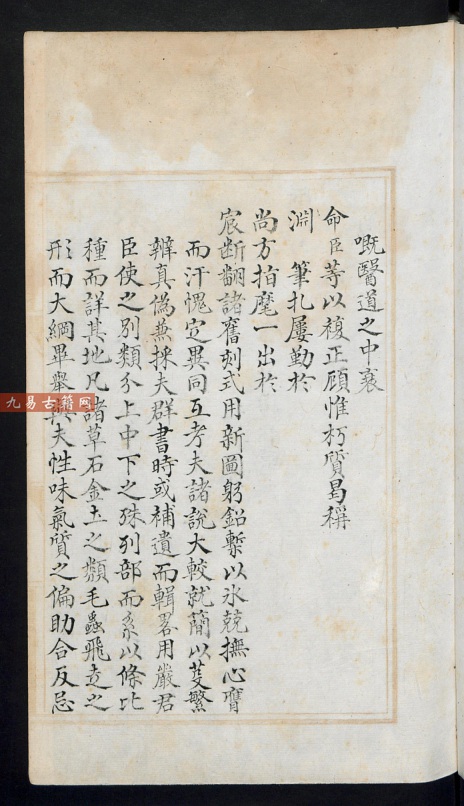 嘅醫道之中衰
命臣䓁以複正顧惟朽質曷稱
淵　筆扎屢勤於
尚方指麾一出於
宸断翻諸舊刻式用新圖躬鉛槧以氷兢撫心膂
而汗愧定異同互考夫諸說大較就簡以芟繁
辨真偽兼採夫群書時或補遺而輯畧用嚴君
臣使之别類分上中下之殊列部而系以條比
種而詳其地凡諸草石金土之類毛蟲飛走之
形而大綱畢舉夫性味氣質之偏助合反忌
九易古籍网